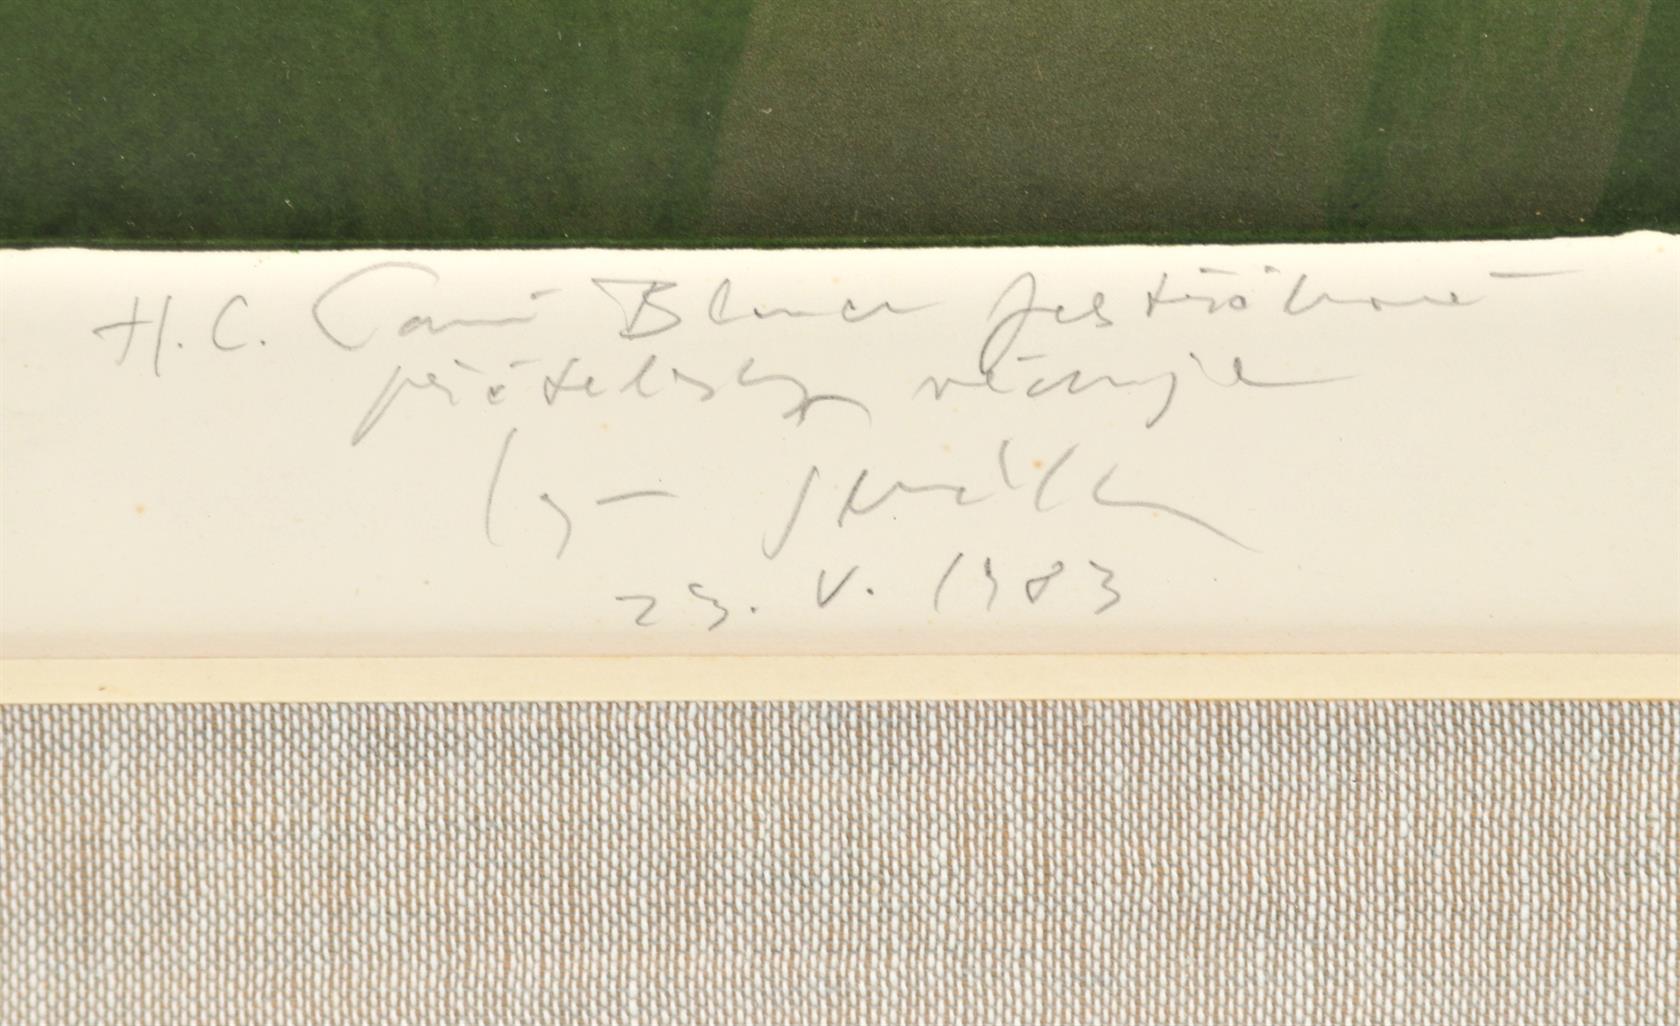 H.C. Paní Blance Jestřábové
přátelsky věnuje
23. V. 1983